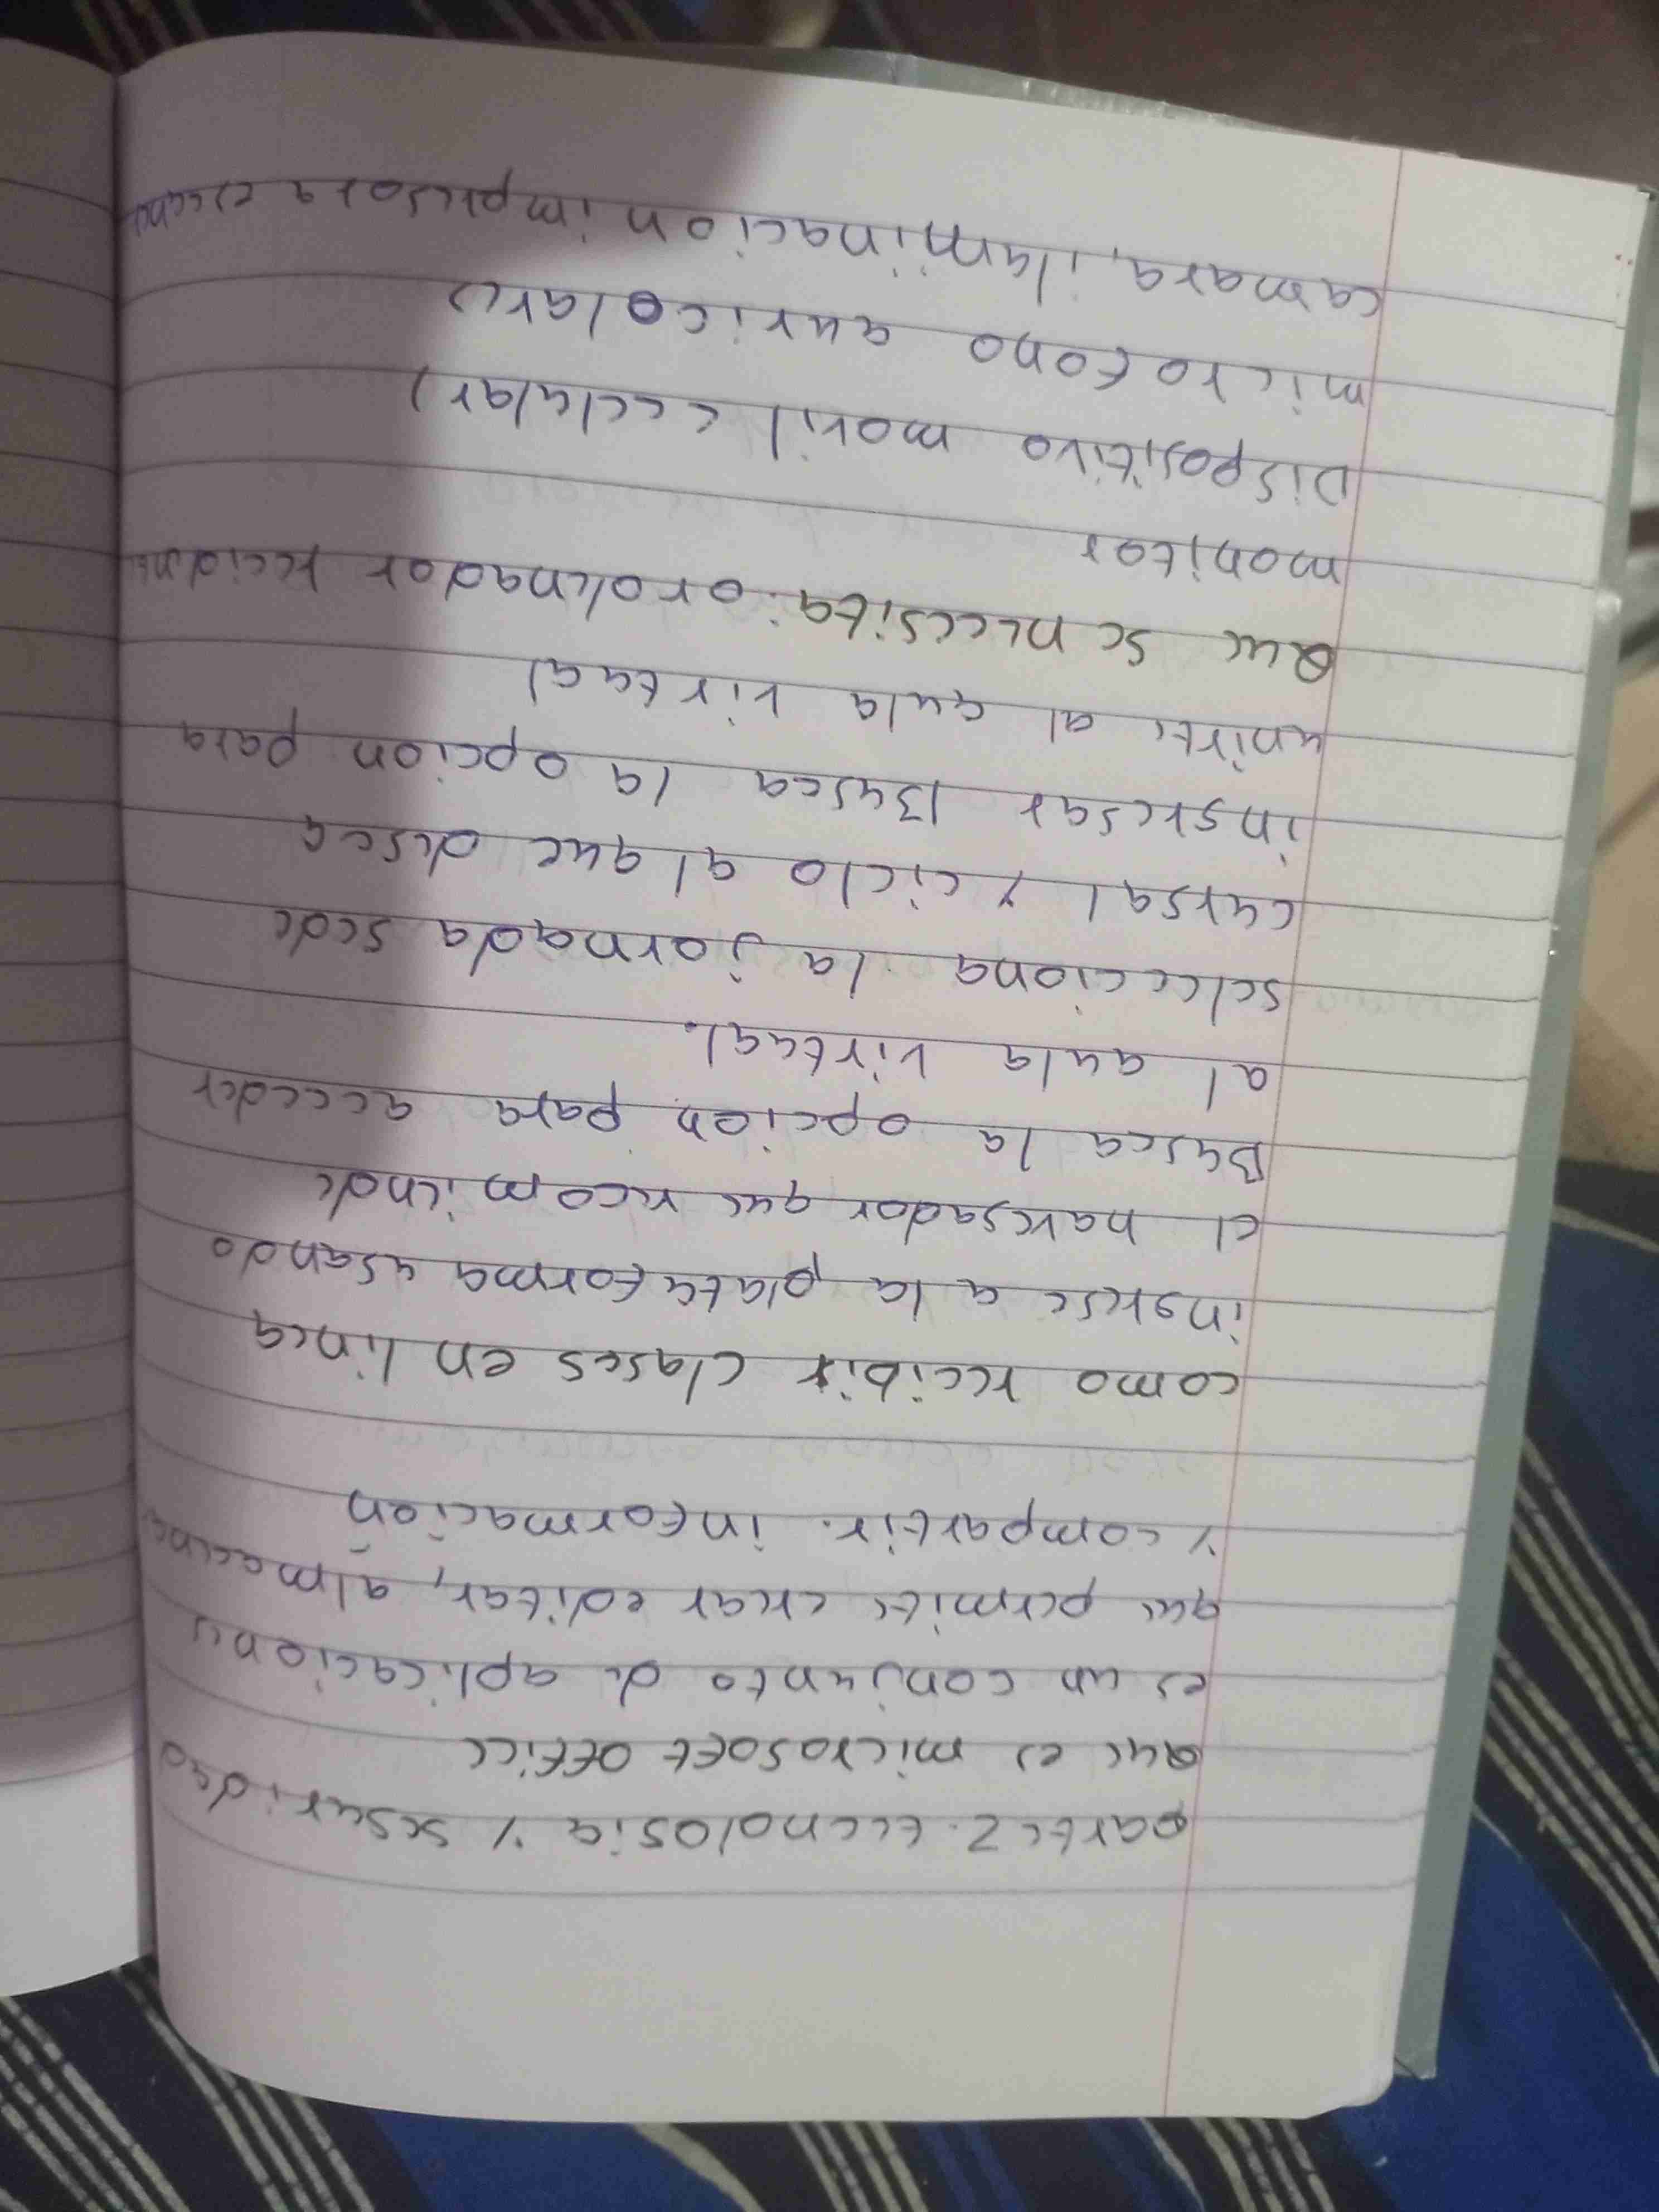 parte 2. tecnologia y seguridad
que es microsoft office
es un conjunto de aplicaciones
que permite crear editar, almacena
y compartir. información
como recibir clases en linea
ingrese a la plataforma usando
el navegador que recomiende
Busca la opcion para acceder
al aula virtual.
selecciona la jornada sede
cursal y ciclo al que desea
ingresar Busca la opcion para
unirte al aula virtual
Que se necesita. ordenador
monitor
Dispositivo movil celular)
microfono auricolares
camara, iluminacion impresora